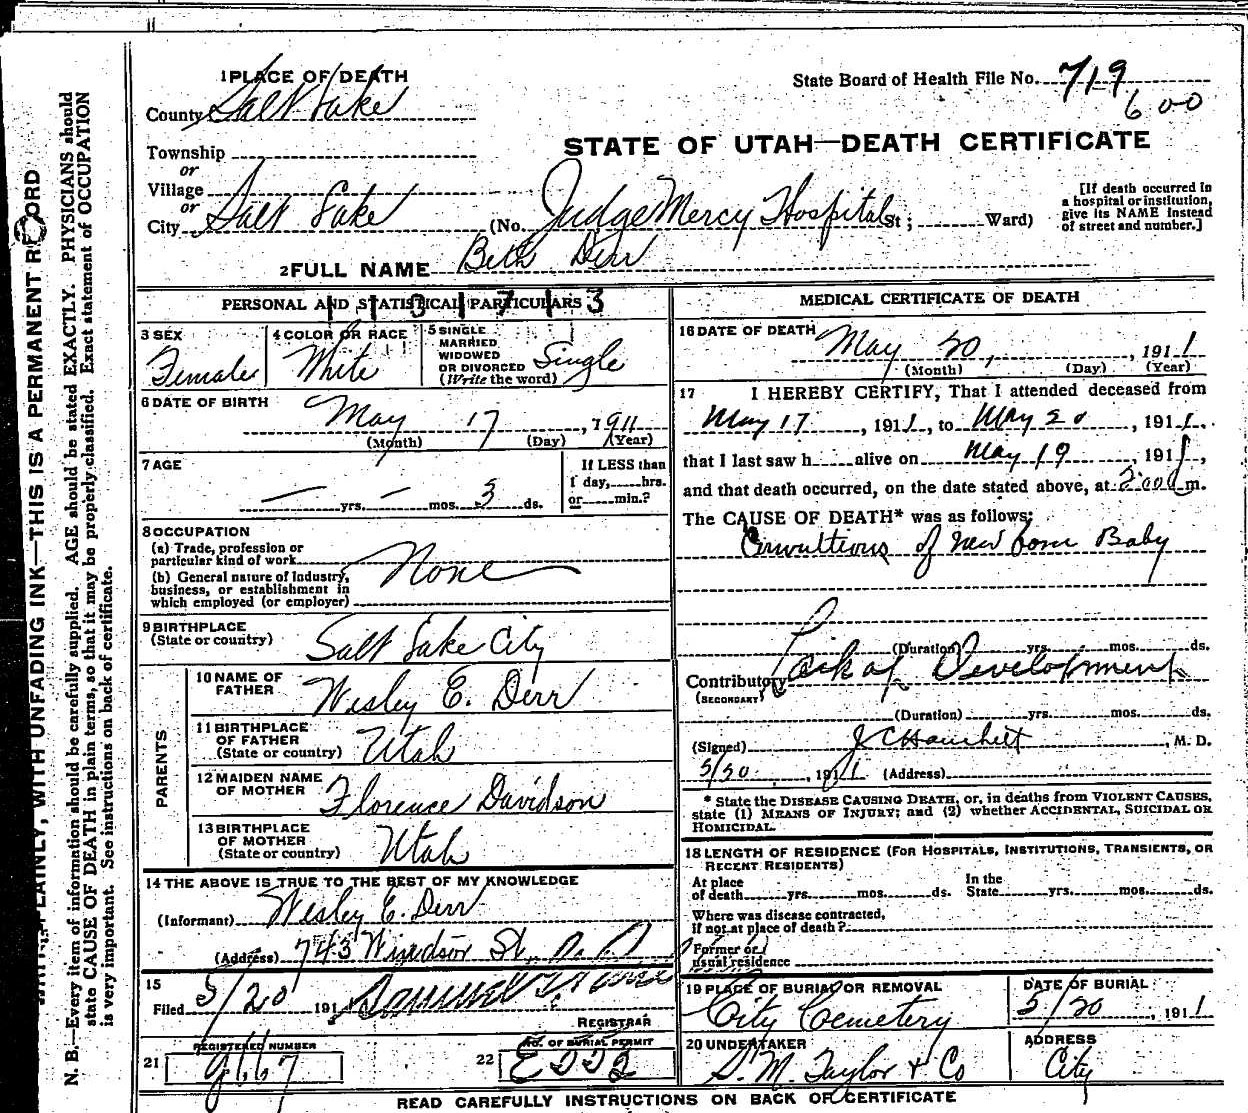 State Board of Health File No. 719
600
1 PLACE OF DEATH
County Salt Lake
STATE OF UTAH—DEATH CERTIFICATE
Township
or
Village
or
City Salt Lake (No. Judge Mercy Hospital St; Ward)
[If death occurred in
a hospital or institution,
give its NAME instead
of street and number.]
2 FULL NAME Beth Derr
PERSONAL AND STATISTICAL PARTICULARS
3 SEX
Female
4 COLOR OR RACE
White
5 SINGLE
MARRIED
WIDOWED
OR DIVORCED
(Write the word)
Single
6 DATE OF BIRTH
May 17, 1911
(Month) (Day) (Year)
7 AGE
— yrs. — mos. 3 ds.
If LESS than
1 day, hrs.
or min.?
8 OCCUPATION
(a) Trade, profession or
particular kind of work
(b) General nature of industry,
business, or establishment in
which employed (or employer)
None
9 BIRTHPLACE
(State or country)
Salt Lake City
PARENTS
10 NAME OF
FATHER
Wesley E. Derr
11 BIRTHPLACE
OF FATHER
(State or country)
Utah
12 MAIDEN NAME
OF MOTHER
Florence Davidson
13 BIRTHPLACE
OF MOTHER
(State or country)
Utah
14 THE ABOVE IS TRUE TO THE BEST OF MY KNOWLEDGE
(Informant) Wesley E. Derr
(Address) 743 Windsor St.
15
Filed 5/20 191
REGISTRAR
21
REGISTERED NUMBER
22
NO. OF BURIAL PERMIT
MEDICAL CERTIFICATE OF DEATH
16 DATE OF DEATH
May 20, 1911
(Month) (Day) (Year)
17 I HEREBY CERTIFY, That I attended deceased from
May 17, 1911, to May 20, 1911,
that I last saw h alive on May 19 1911,
and that death occurred, on the date stated above, at m.
The CAUSE OF DEATH* was as follows:
of new born Baby
(Duration) yrs. mos. ds.
Contributory Lack of Development
(SECONDARY)
(Duration) yrs. mos. ds.
(Signed) , M. D.
5/20, 1911 (Address)
* State the DISEASE CAUSING DEATH, or, in deaths from VIOLENT CAUSES,
state (1) MEANS OF INJURY; and (2) whether ACCIDENTAL, SUICIDAL OR
HOMICIDAL.
18 LENGTH OF RESIDENCE (FOR HOSPITALS, INSTITUTIONS, TRANSIENTS, OR
RECENT RESIDENTS)
At place
of death yrs. mos. ds.
In the
State yrs. mos. ds.
Where was disease contracted,
if not at place of death?
Former or
usual residence
19 PLACE OF BURIAL OR REMOVAL
City Cemetery
DATE OF BURIAL
5/20, 1911
20 UNDERTAKER
S. M. Taylor & Co
ADDRESS
City
READ CAREFULLY INSTRUCTIONS ON BACK OF CERTIFICATE
PLAINLY, WITH UNFADING INK—THIS IS A PERMANENT RECORD
N. B.—Every item of information should be carefully supplied. AGE should be stated EXACTLY. PHYSICIANS should
state CAUSE OF DEATH in plain terms, so that it may be properly classified. Exact statement of OCCUPATION
is very important. See instructions on back of certificate.